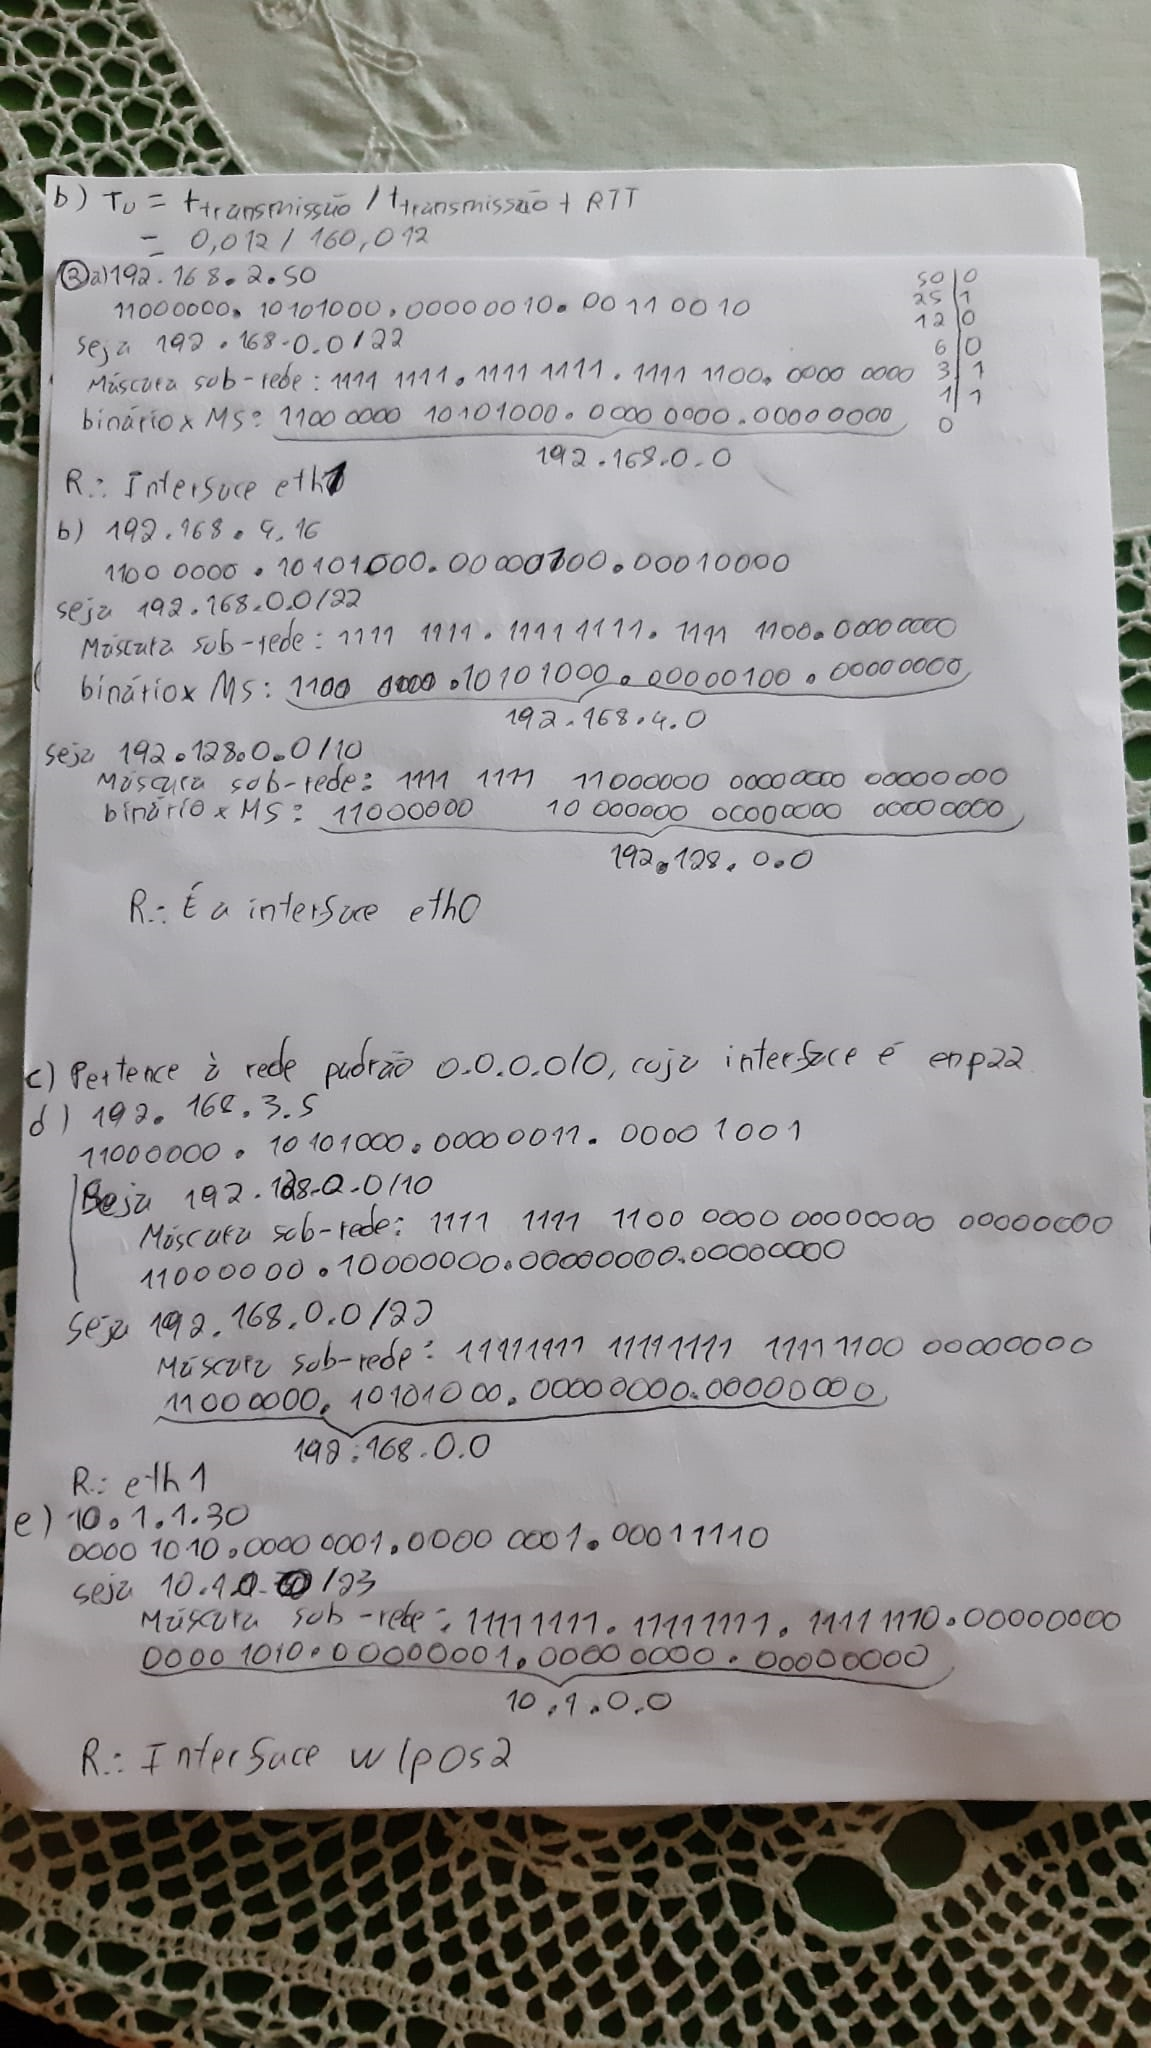 b) Tu = t transmissão / t transmissão + RTT
= 0,012 / 160,012
3 a) 192.168.2.50
11000000.10101000.00000010.00110010
seja 192.168.0.0/22
Máscara sub-rede: 1111 1111.1111 1111.1111 1100.0000 0000
binário x MS: 1100 0000 10101000.0000 0000.00000000
192.168.0.0
50|0
25|1
12|0
6|0
3|1
1|1
0
R.: Interface eth1
b) 192.168.4.16
1100 0000.10101000.00000100.00010000
seja 192.168.0.0/22
Máscara sub-rede: 1111 1111.1111 1111.1111 1100.00000000
binário x MS: 1100 0000.10101000.00000100.00000000
192.168.4.0
seja 192.128.0.0/10
Máscara sub-rede: 1111 1111 11000000 00000000 00000000
binário x MS: 11000000 10 000000 00000000 00000000
192.128.0.0
R.: É a interface eth0
c) Pertence à rede padrão 0.0.0.0/0, cuja interface é enp22
d) 192.168.3.5
11000000.10101000.00000011.00001001
Seja 192.128.0.0/10
Máscara sub-rede: 1111 1111 1100 0000 00000000 00000000
11000000.10000000.00000000.00000000
seja 192.168.0.0/22
Máscara sub-rede: 11111111 11111111 11111100 00000000
11000000.10101000.00000000.00000000
192.168.0.0
R.: eth1
e) 10.1.1.30
0000 1010.0000 0001.0000 0001.00011110
seja 10.1.0.0/23
Máscara sub-rede: 11111111.11111111.11111110.00000000
0000 1010.00000001.00000000.00000000
10.1.0.0
R.: Interface wlp0s2